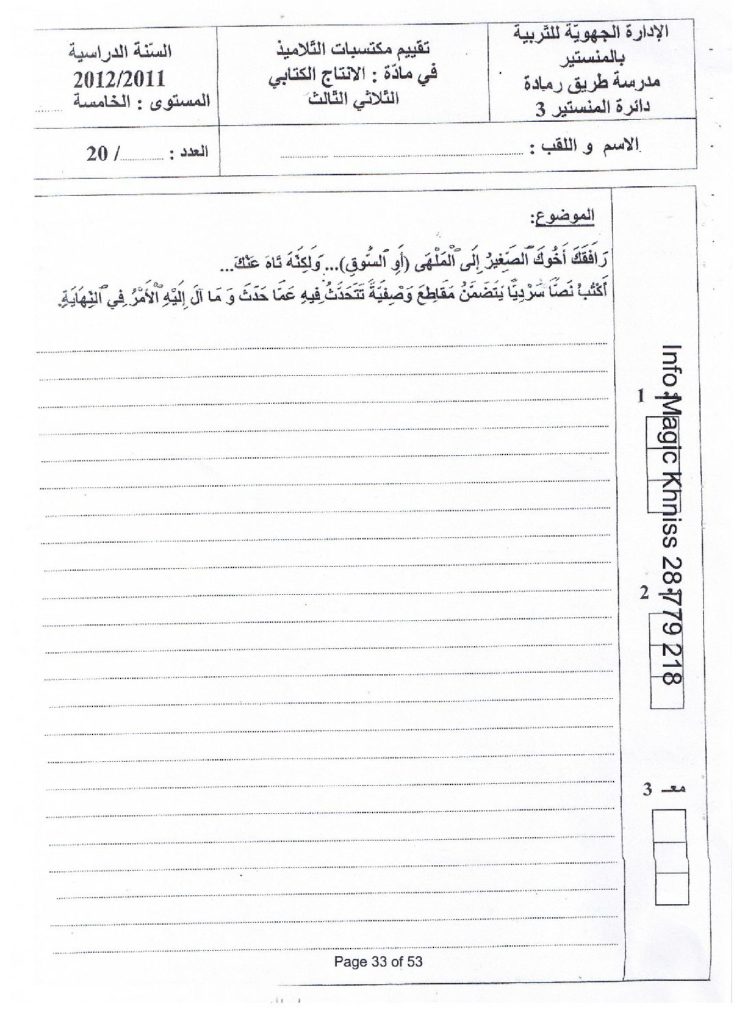 الإدارة الجهويّة للتّربية
بالمنستير
مدرسة طريق رمادة
دائرة المنستير 3
تقييم مكتسبات التّلاميذ
في مادّة : الانتاج الكتابي
الثّلاثي الثّالث
السّنة الدراسية
2012/2011
المستوى : الخامسة
الاسم و اللقب :
العدد : / 20
الموضوع:
رَافَقَكَ أَخُوكَ ٱلصَّغِيرُ إِلَى ٱلْمَلْهَى (أَوِ ٱلسُّوقِ)... وَلَكِنَّهُ تَاهَ عَنْكَ...
أُكْتُبْ نَصًّا سَرْدِيًّا يَتَضَمَّنُ مَقَاطِعَ وَصْفِيَّةً تَتَحَدَّثُ فِيهِ عَمَّا حَدَثَ وَ مَا آلَ إِلَيْهِ ٱلْأَمْرُ فِي ٱلنِّهَايَةِ.
1
2
معـ 3
Info Magic Khniss 28 779 218
Page 33 of 53